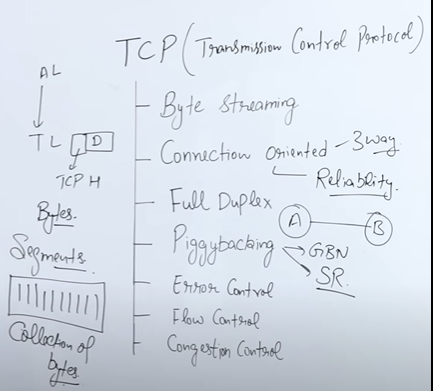 TCP (Transmission Control Protocol)
AL
TL D
TCP H
Bytes.
Segments.
Collection of
bytes
Byte Streaming
Connection Oriented - 3way
Reliability.
Full Duplex
A B
Piggybacking GBN
SR.
Error Control
Flow Control
Congestion Control